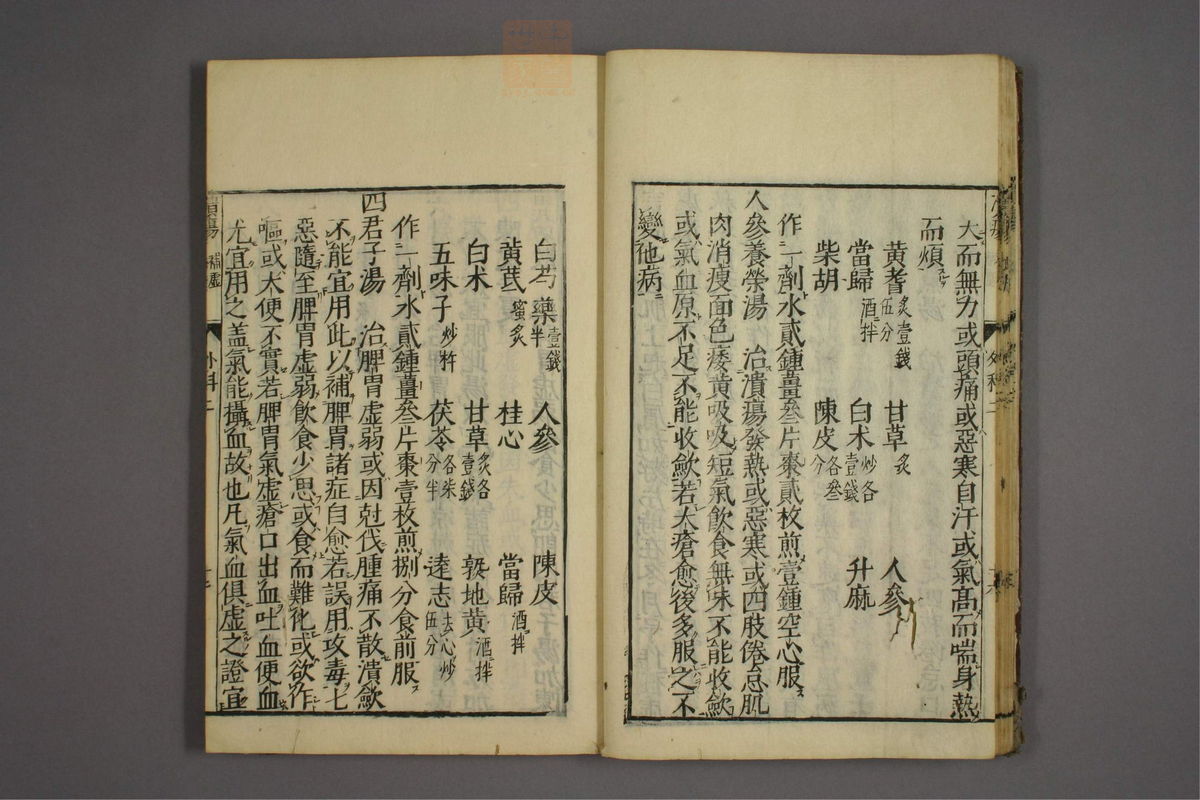 大而無力或頭痛或惡寒自汗或氣高而喘身熱
而煩
黃耆炙壹錢伍分 甘草炙 人參
當歸酒拌 白朮炒各壹錢 升麻
柴胡 陳皮各叁分
作一劑水貳鍾薑叁片棗貳枚煎壹鍾空心服
人參養榮湯 治潰瘍發熱或惡寒或四肢倦怠肌
肉消瘦面色痿黃吸吸短氣飲食無味不能收斂
或氣血原不足不能收斂若大瘡愈後多服之不
變他病
白芍藥壹錢半 人參 陳皮
黃芪蜜炙 桂心 當歸酒拌
白朮 甘草炙各壹錢 熟地黃酒拌
五味子炒杵 茯苓各柒分半 遠志去心炒伍分
作一劑水貳鍾薑叁片棗壹枚煎捌分食前服
四君子湯 治脾胃虛弱或因尅伐腫痛不散潰斂
不能宜用此以補脾胃諸症自愈若誤用攻毒七
惡隨至脾胃虛弱飲食少思或食而難化或欲作
嘔或大便不實若脾胃氣虛瘡口出血吐血便血
尤宜用之盖氣能攝血故也凡氣血俱虛之證宜
潰瘍 補虛 外科二